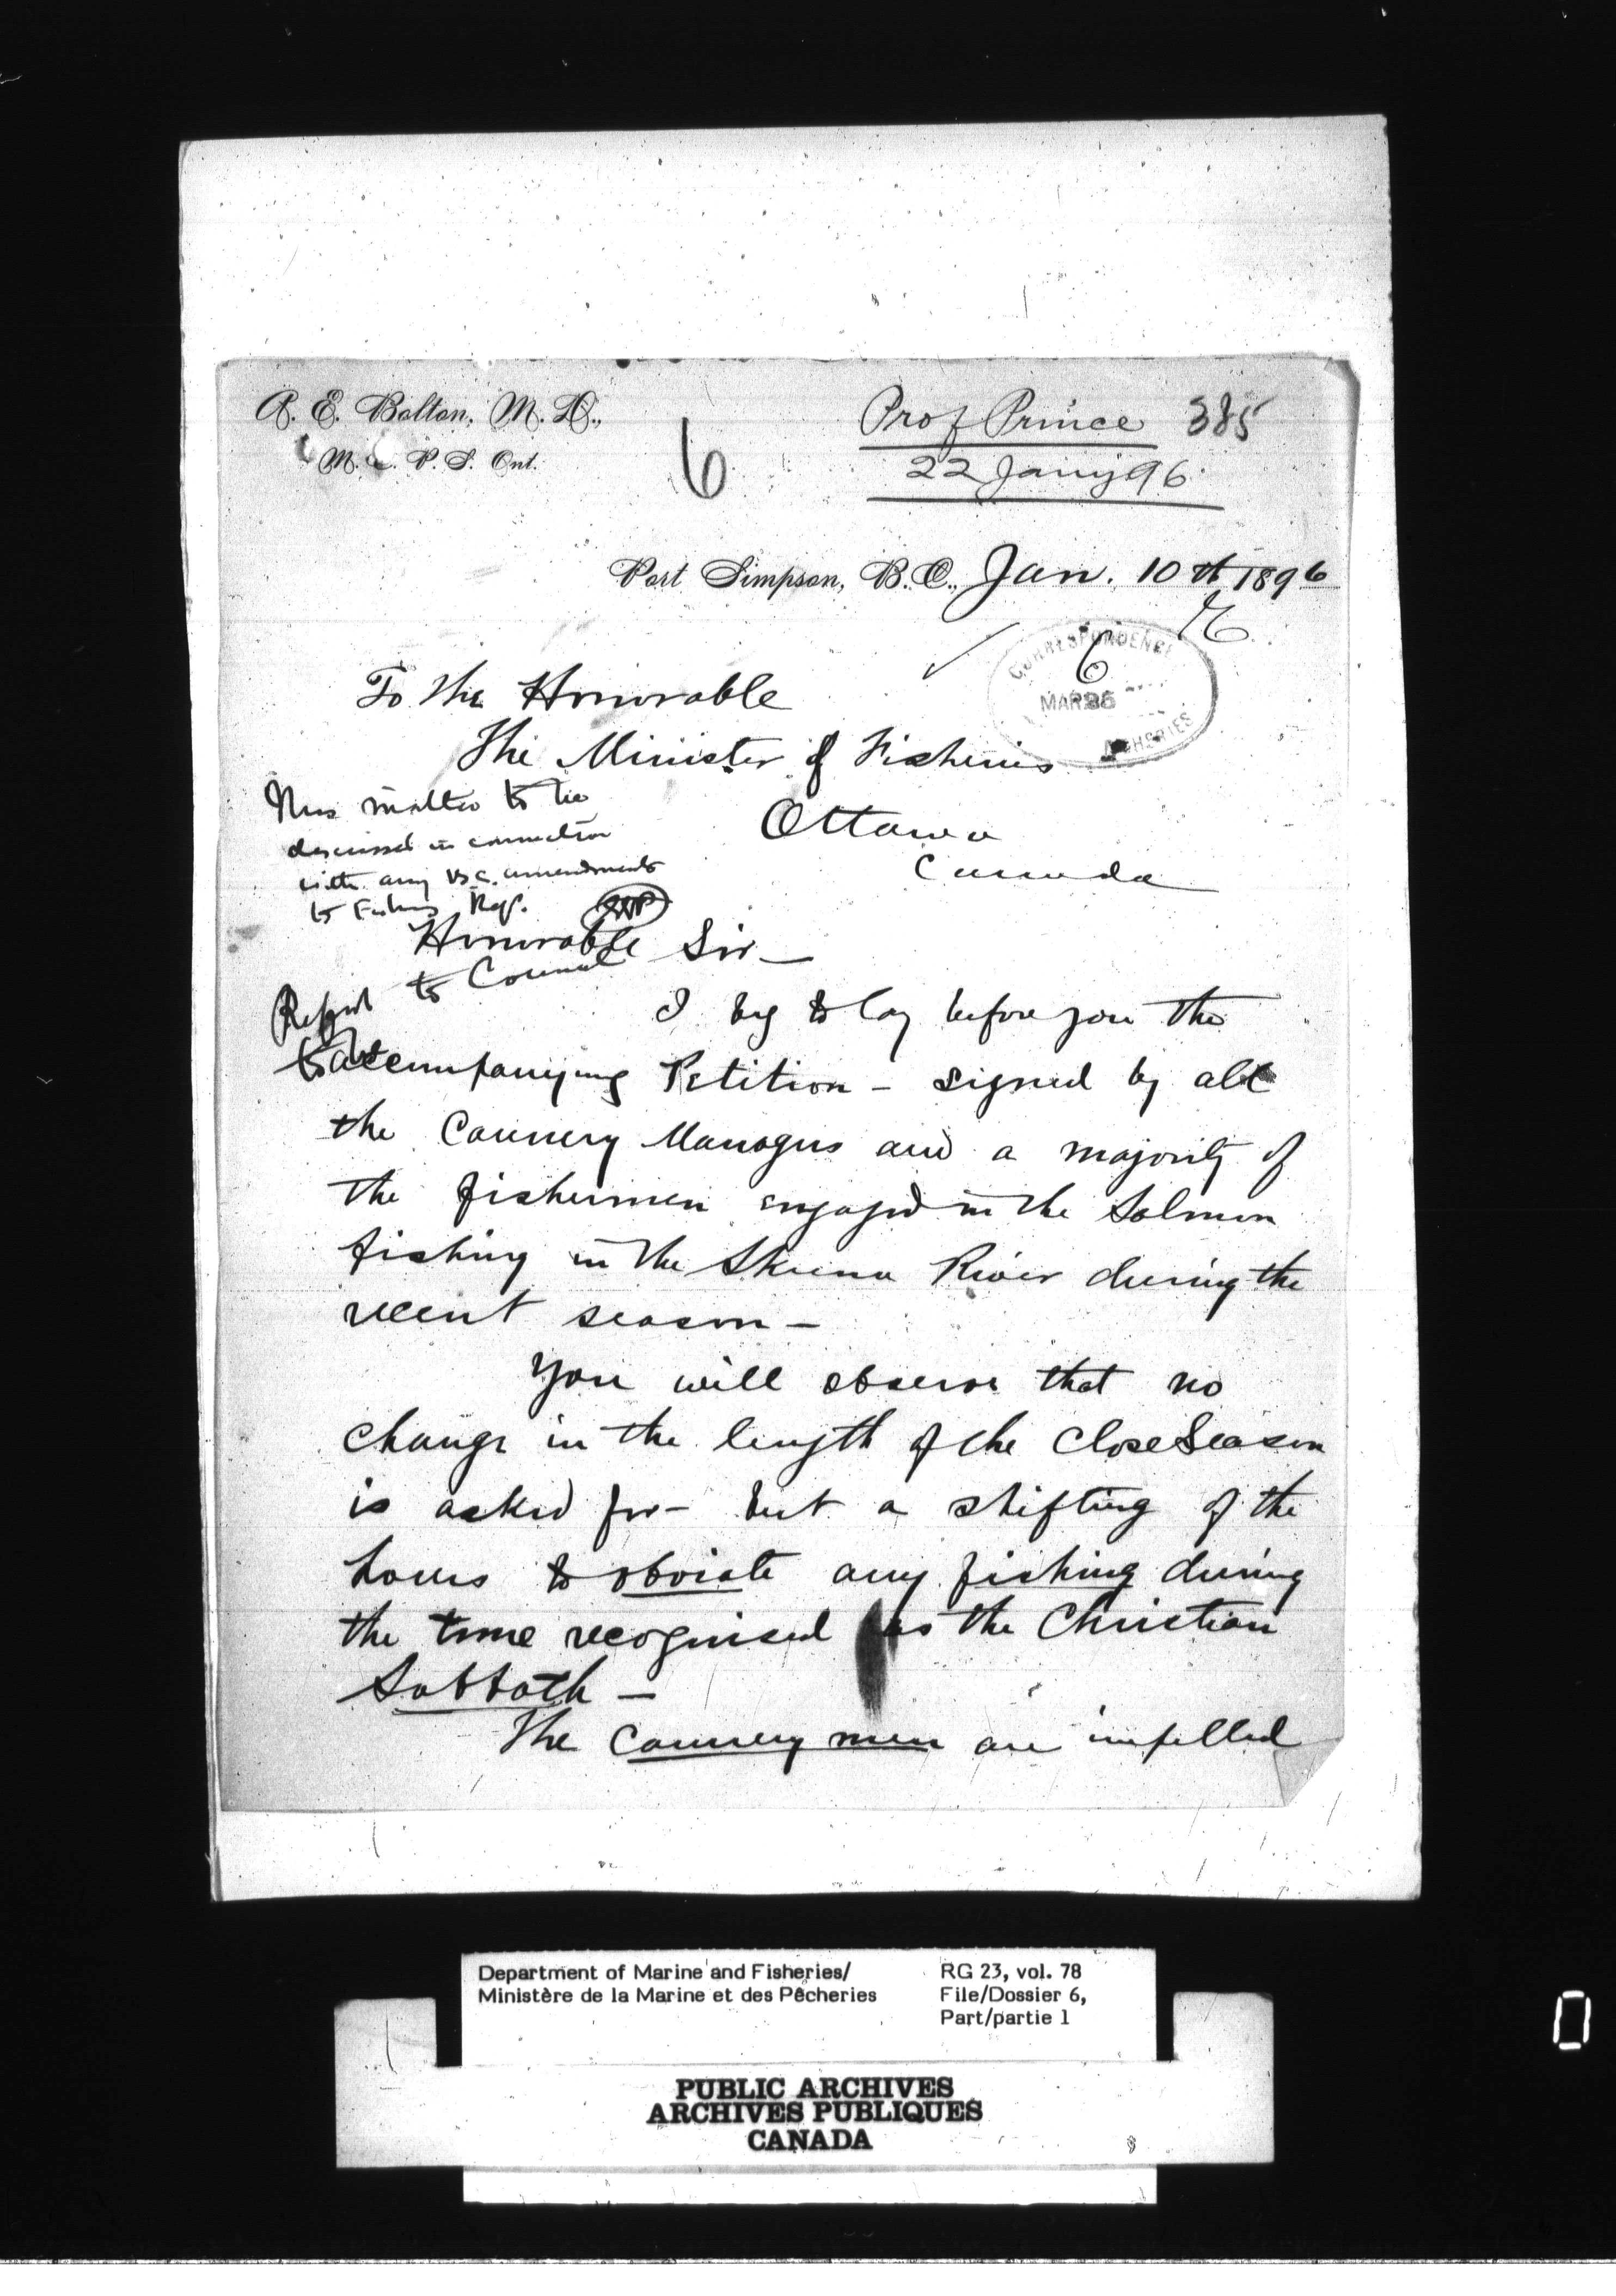 A. E. Bolton, M. D.,
M. C. P. S. Ont.
6
Prof Prince 385
22 Jany 96
Port Simpson, B. C., Jan. 10th 1896
CORRESPONDENCE
6
MAR 96
FISHERIES
To the Honorable
The Minister of Fisheries
Ottawa
Canada
This matter to be
discussed in connection
with any B.C. amendments
to Fishery Regs.
Honorable Sir —
Report to Council
I beg to lay before you the
accompanying Petition - signed by all
the Cannery Managers and a majority of
the fishermen engaged in the Salmon
fishing in the Skeena River during the
recent season -
You will observe that no
change in the length of the Close Season
is asked for - but a shifting of the
hours to obviate any fishing during
the time recognised as the Christian
Sabbath —
The Cannery men are impelled
Department of Marine and Fisheries/
Ministère de la Marine et des Pêcheries
RG 23, vol. 78
File/Dossier 6,
Part/partie 1
PUBLIC ARCHIVES
ARCHIVES PUBLIQUES
CANADA